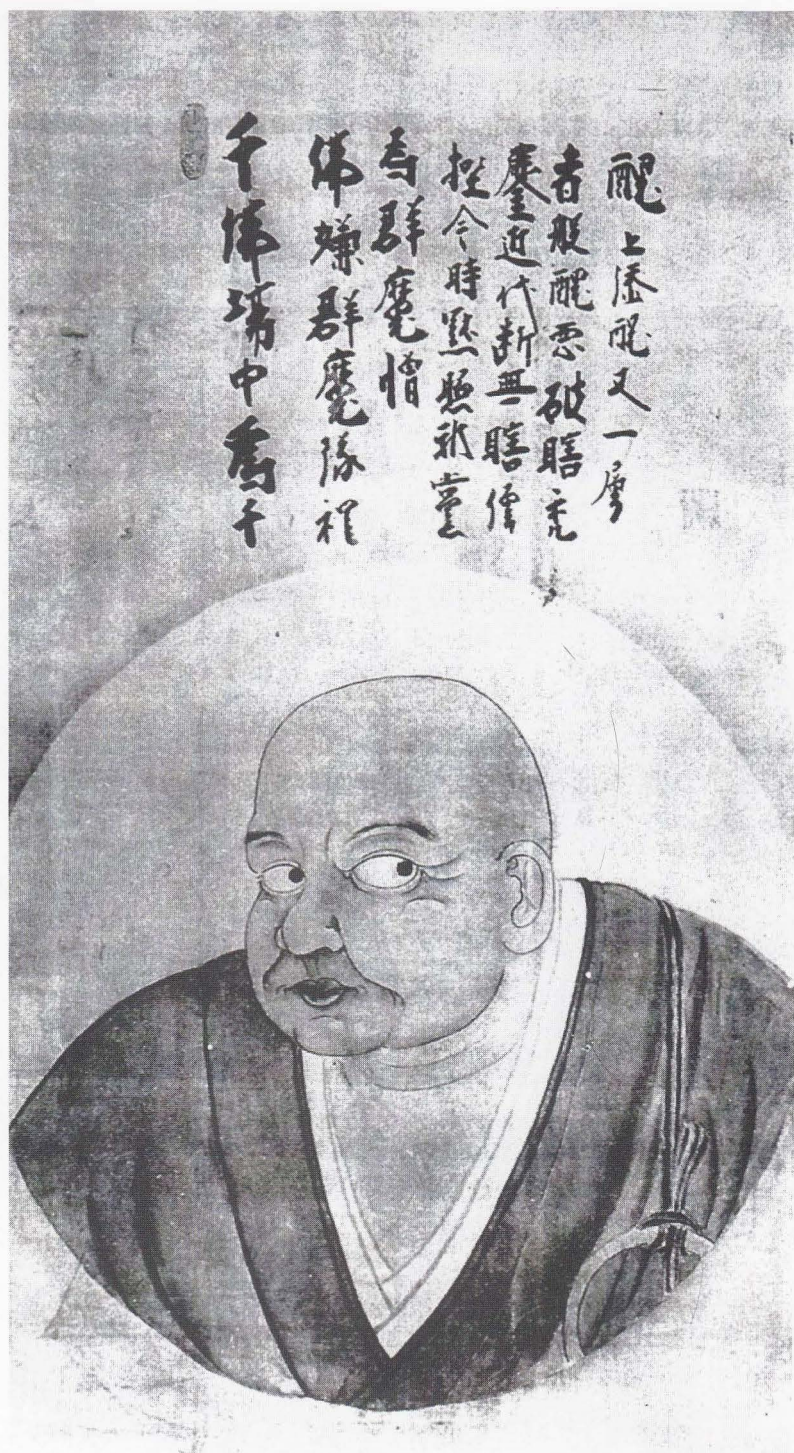 千佛場中為千
佛嫌群魔隊裡
為群魔憎
挫今時黙照邪黨
鏖近代断無瞎僧
者般醜悪破瞎禿
醜上添醜又一層